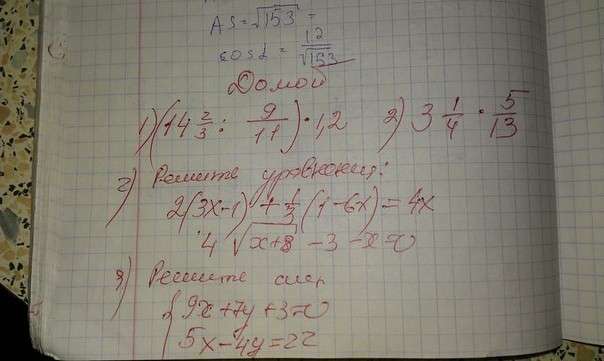 AS = √153 =
cos α = 12/√153
Домой
1) (14 2/3 : 9/11) · 1,2 2) 3 1/4 · 5/13
2) Решите уравнения:
2(3x-1) + 1/3 (1-6x) = 4x
4 √x+8 - 3 - x = 0
3) Решите
{ 9x + 7y + 3 = 0
5x - 4y = 22